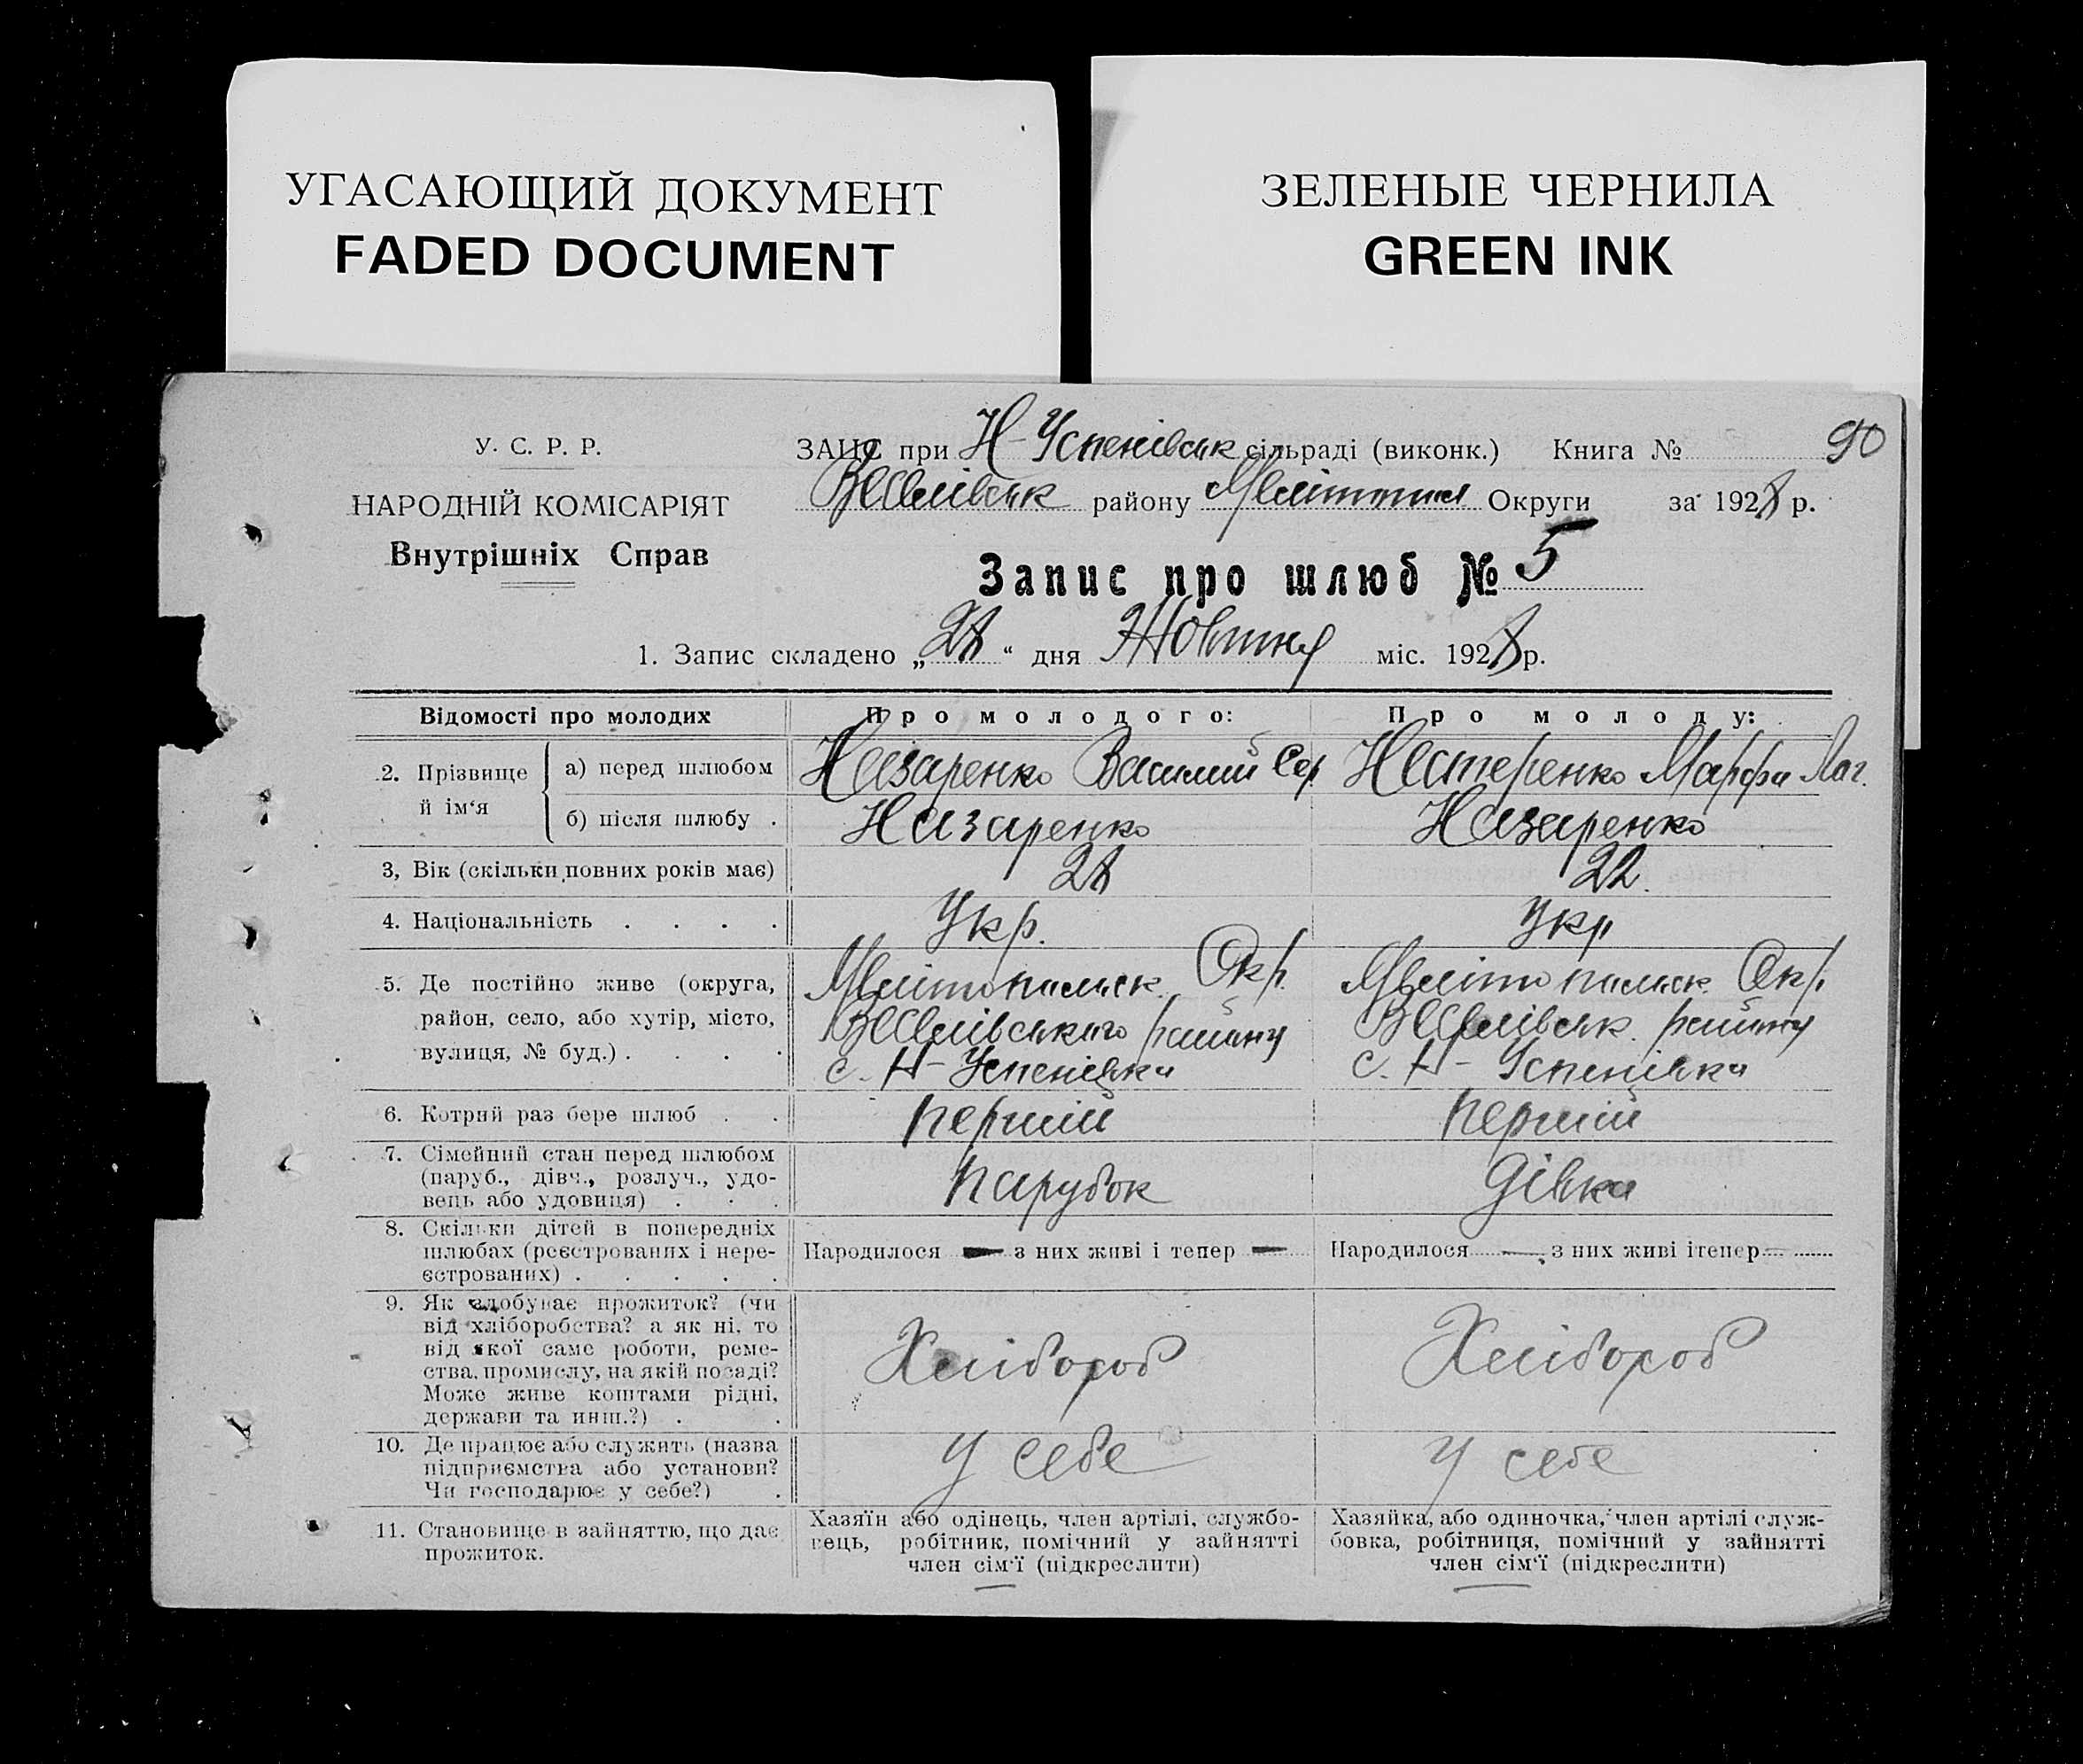 УГАСАЮЩИЙ ДОКУМЕНТ
FADED DOCUMENT
ЗЕЛЕНЫЕ ЧЕРНИЛА
GREEN INK
У. С. Р. Р.
НАРОДНІЙ КОМІСАРІЯТ
Внутрішніх Справ
ЗАЦС при Н-Успенівськ сільраді (виконк.) Книга № 90
Веселівськ району Мелітопил Округи за 1928 р.
Запис про шлюб № 5
1. Запис складено „28“ дня Жовтня міс. 1928 р.
Відомості про молодих
Про молодого:
Про молоду:
2. Прізвище й ім‘я
а) перед шлюбом
Назаренко Василий Сер
Нестеренко Марфа
б) після шлюбу .
Назаренко
Назаренко
3, Вік (скільки повних років має)
28
22.
4. Національність . . . .
Укр.
Укр
5. Де постійно живе (округа,
район, село, або хутір, місто,
вулиця, № буд.) . . . .
Мелітопильськ. Окр.
Веселівського району
с. Н-Успенівка
Мелітопильск. Окр.
Веселівськ. району
с. Н-Успенівка
6. Котрий раз бере шлюб . .
перший
перший
7. Сімейний стан перед шлюбом
(паруб., дівч., розлуч., удо-
вець або удовиця) . . .
парубок
дівка
8. Скільки дітей в попередніх
шлюбах (реєстрованих і нере-
єстрованих) . . . . .
Народилося — з них живі і тепер —
Народилося — з них живі ітепер —
9. Як здобуває прожиток? (чи
від хліборобства? а як ні, то
від якої саме роботи, реме-
ства, промислу, на якій посаді?
Може живе коштами рідні,
держави та инш.?) . .
Хлібороб
Хлібороб
10. Де працює або служить (назва
підприємства або установи?
Чи господарює у себе?) .
у себе
у себе
11. Становище в зайняттю, що дає
прожиток.
Хазяїн або одінець, член артілі, службо-
вець, робітник, помічний у зайнятті
член сім‘ї (підкреслити)
Хазяйка, або одиночка, член артілі служ-
бовка, робітниця, помічний у зайнятті
член сім‘ї (підкреслити)